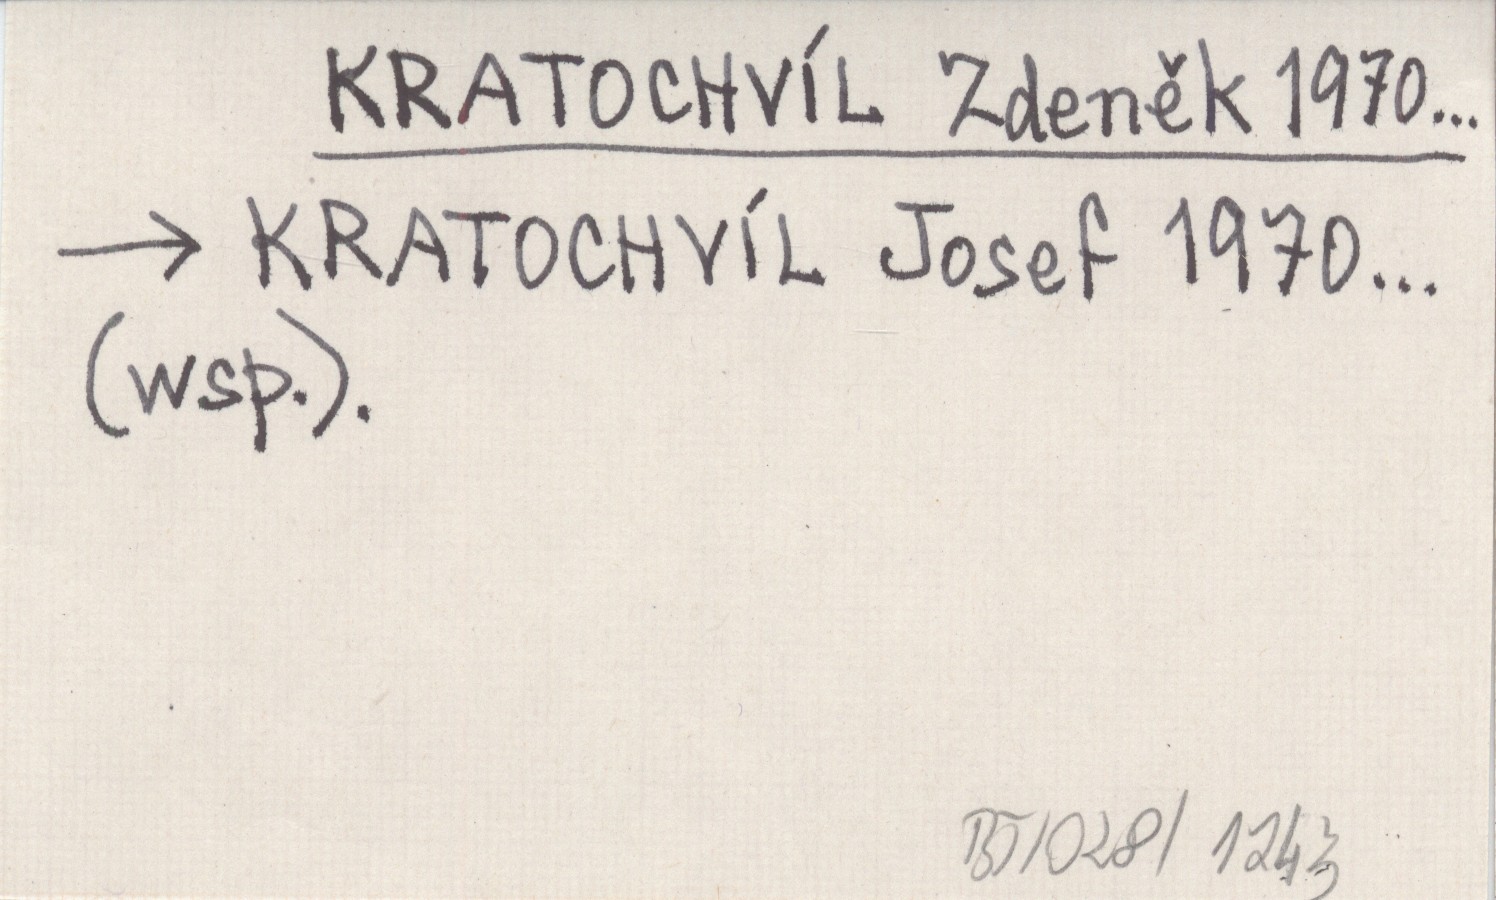 KRATOCHVÍL Zdeněk 1970...
→ KRATOCHVÍL Josef 1970...
(wsp.).
BJ/028/ 1243